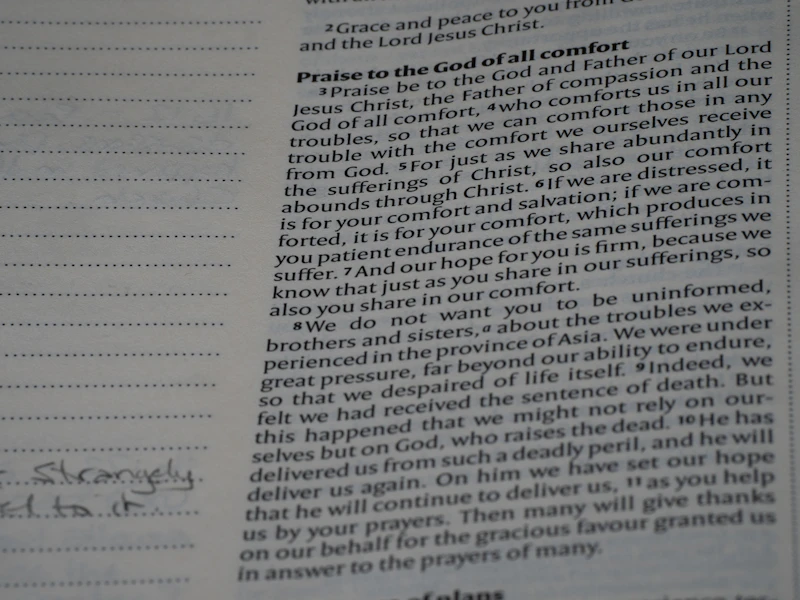 2 Grace and peace to you from G
and the Lord Jesus Christ.
Praise to the God of all comfort
3 Praise be to the God and Father of our Lord
Jesus Christ, the Father of compassion and the
God of all comfort, 4 who comforts us in all our
troubles, so that we can comfort those in any
trouble with the comfort we ourselves receive
from God. 5 For just as we share abundantly in
the sufferings of Christ, so also our comfort
abounds through Christ. 6 If we are distressed, it
is for your comfort and salvation; if we are com-
forted, it is for your comfort, which produces in
you patient endurance of the same sufferings we
suffer. 7 And our hope for you is firm, because we
know that just as you share in our sufferings, so
also you share in our comfort.
8 We do not want you to be uninformed,
brothers and sisters, a about the troubles we ex-
perienced in the province of Asia. We were under
great pressure, far beyond our ability to endure,
so that we despaired of life itself. 9 Indeed, we
felt we had received the sentence of death. But
this happened that we might not rely on our-
selves but on God, who raises the dead. 10 He has
delivered us from such a deadly peril, and he will
deliver us again. On him we have set our hope
that he will continue to deliver us, 11 as you help
us by your prayers. Then many will give thanks
on our behalf for the gracious favour granted us
in answer to the prayers of many.
of plans
Strangely
to it